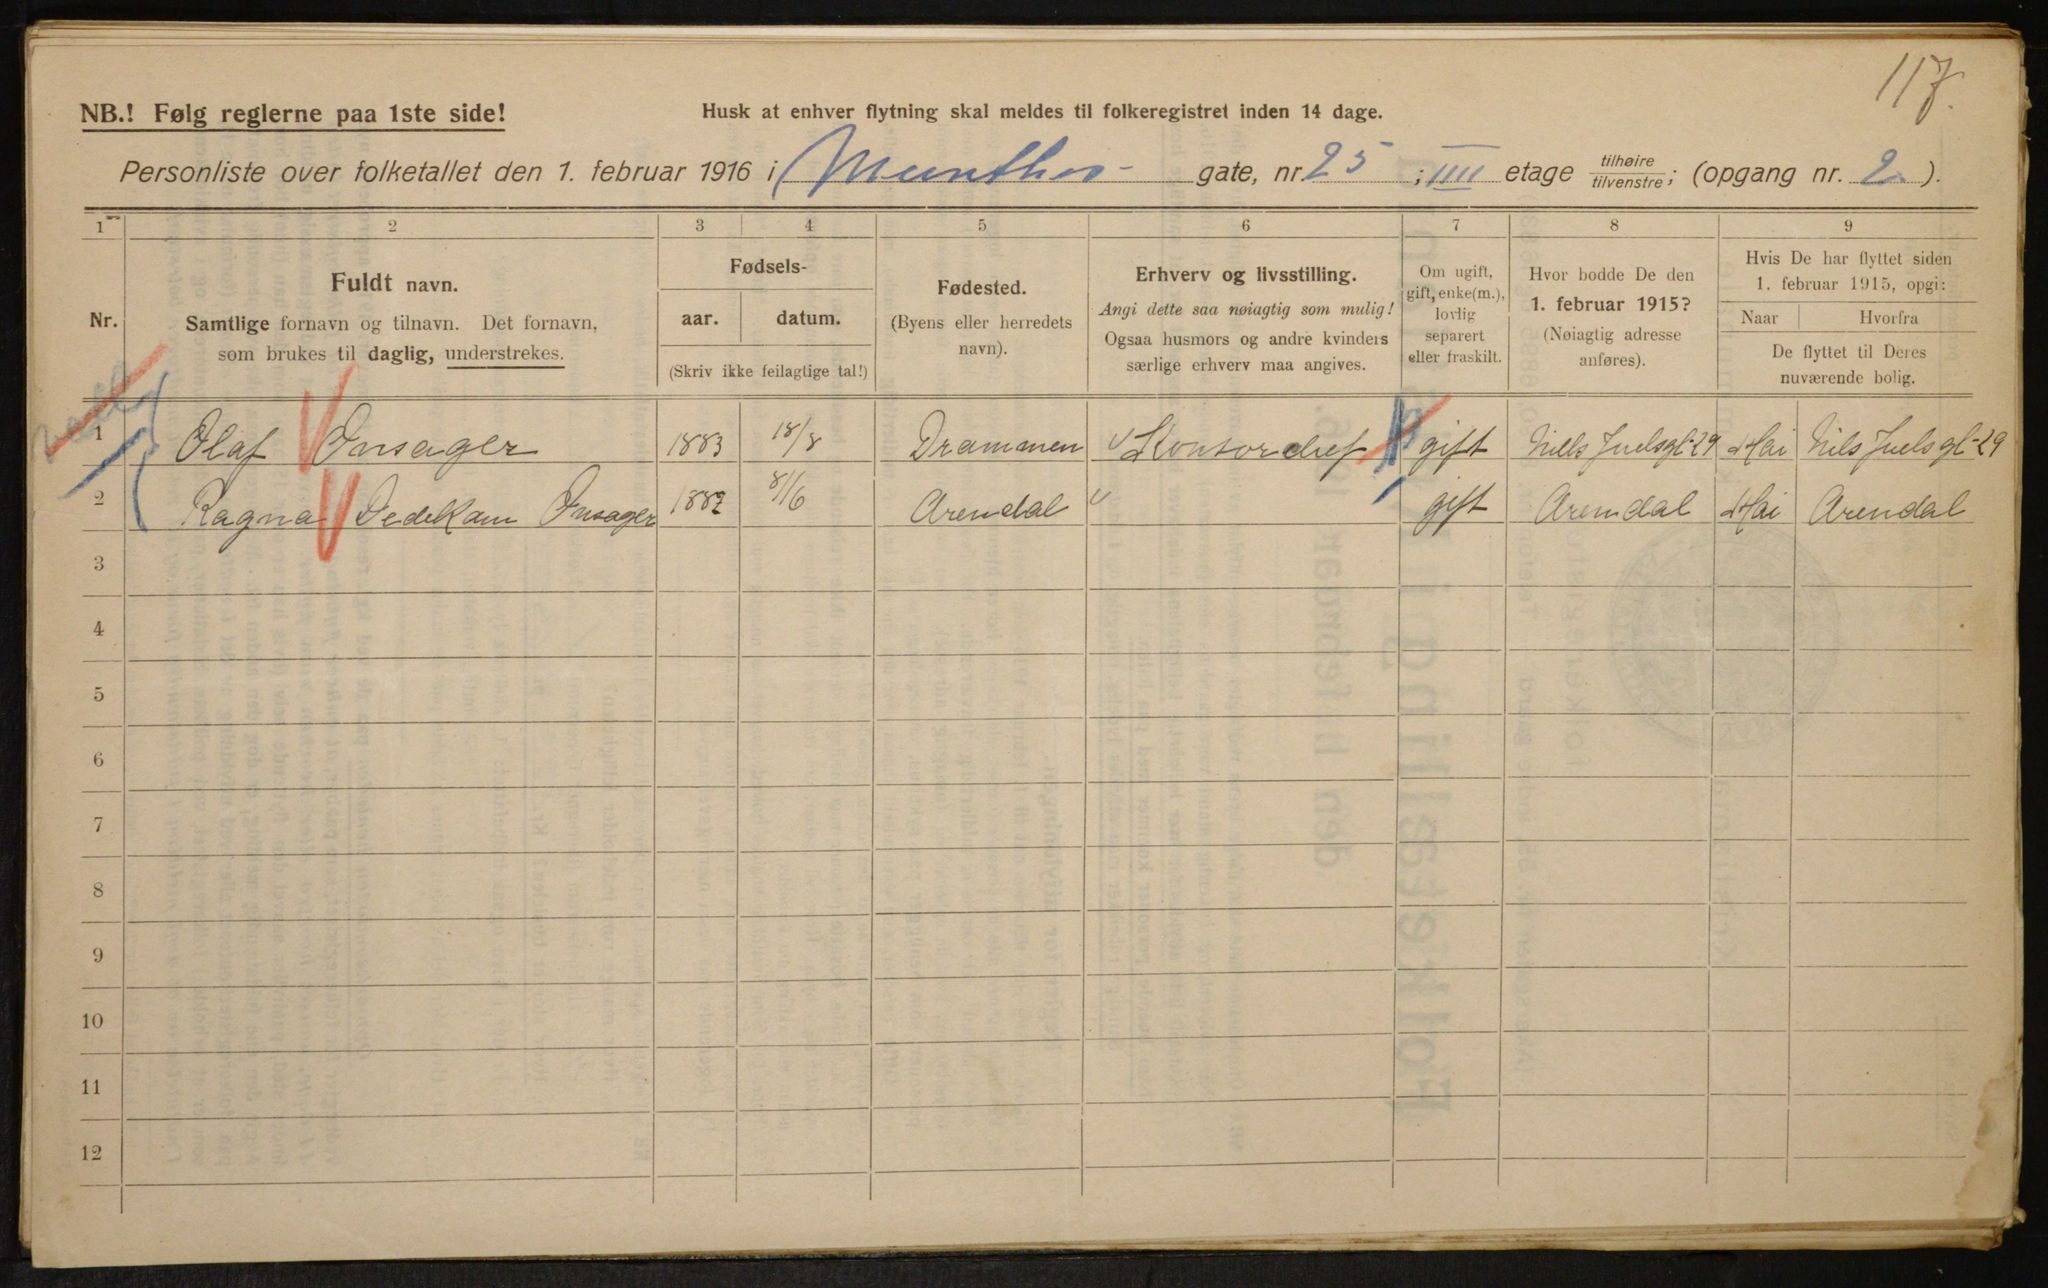 117.
NB.! Følg reglerne paa 1ste side!
Husk at enhver flytning skal meldes til folkeregistret inden 14 dage.
Personliste over folketallet den 1. februar 1916 i Munthes- gate, nr. 25 ; IIII etage tilhøire/tilvenstre; (opgang nr. 2 ).
1 2 3 4 5 6 7 8 9
Nr.
Fuldt navn.
Samtlige fornavn og tilnavn. Det fornavn,
som brukes til daglig, understrekes.
Fødsels-
aar. datum.
(Skriv ikke feilagtige tal!)
Fødested.
(Byens eller herredets
navn).
Erhverv og livsstilling.
Angi dette saa nøiagtig som mulig!
Ogsaa husmors og andre kvinders
særlige erhverv maa angives.
Om ugift,
gift, enke(m.),
lovlig
separert
eller fraskilt.
Hvor bodde De den
1. februar 1915?
(Nøiagtig adresse
anføres).
Hvis De har flyttet siden
1. februar 1915, opgi:
Naar Hvorfra
De flyttet til Deres
nuværende bolig.
1 Olaf Onsager 1883 18/8 Drammen Kontorchef gift Niels Juelsgt-29 Mai Nils Juels gt-29
2 Ragna Dedekam Onsager 1882 8/6 Arendal gift Arendal Mai Arendal
3
4
5
6
7
8
9
10
11
12